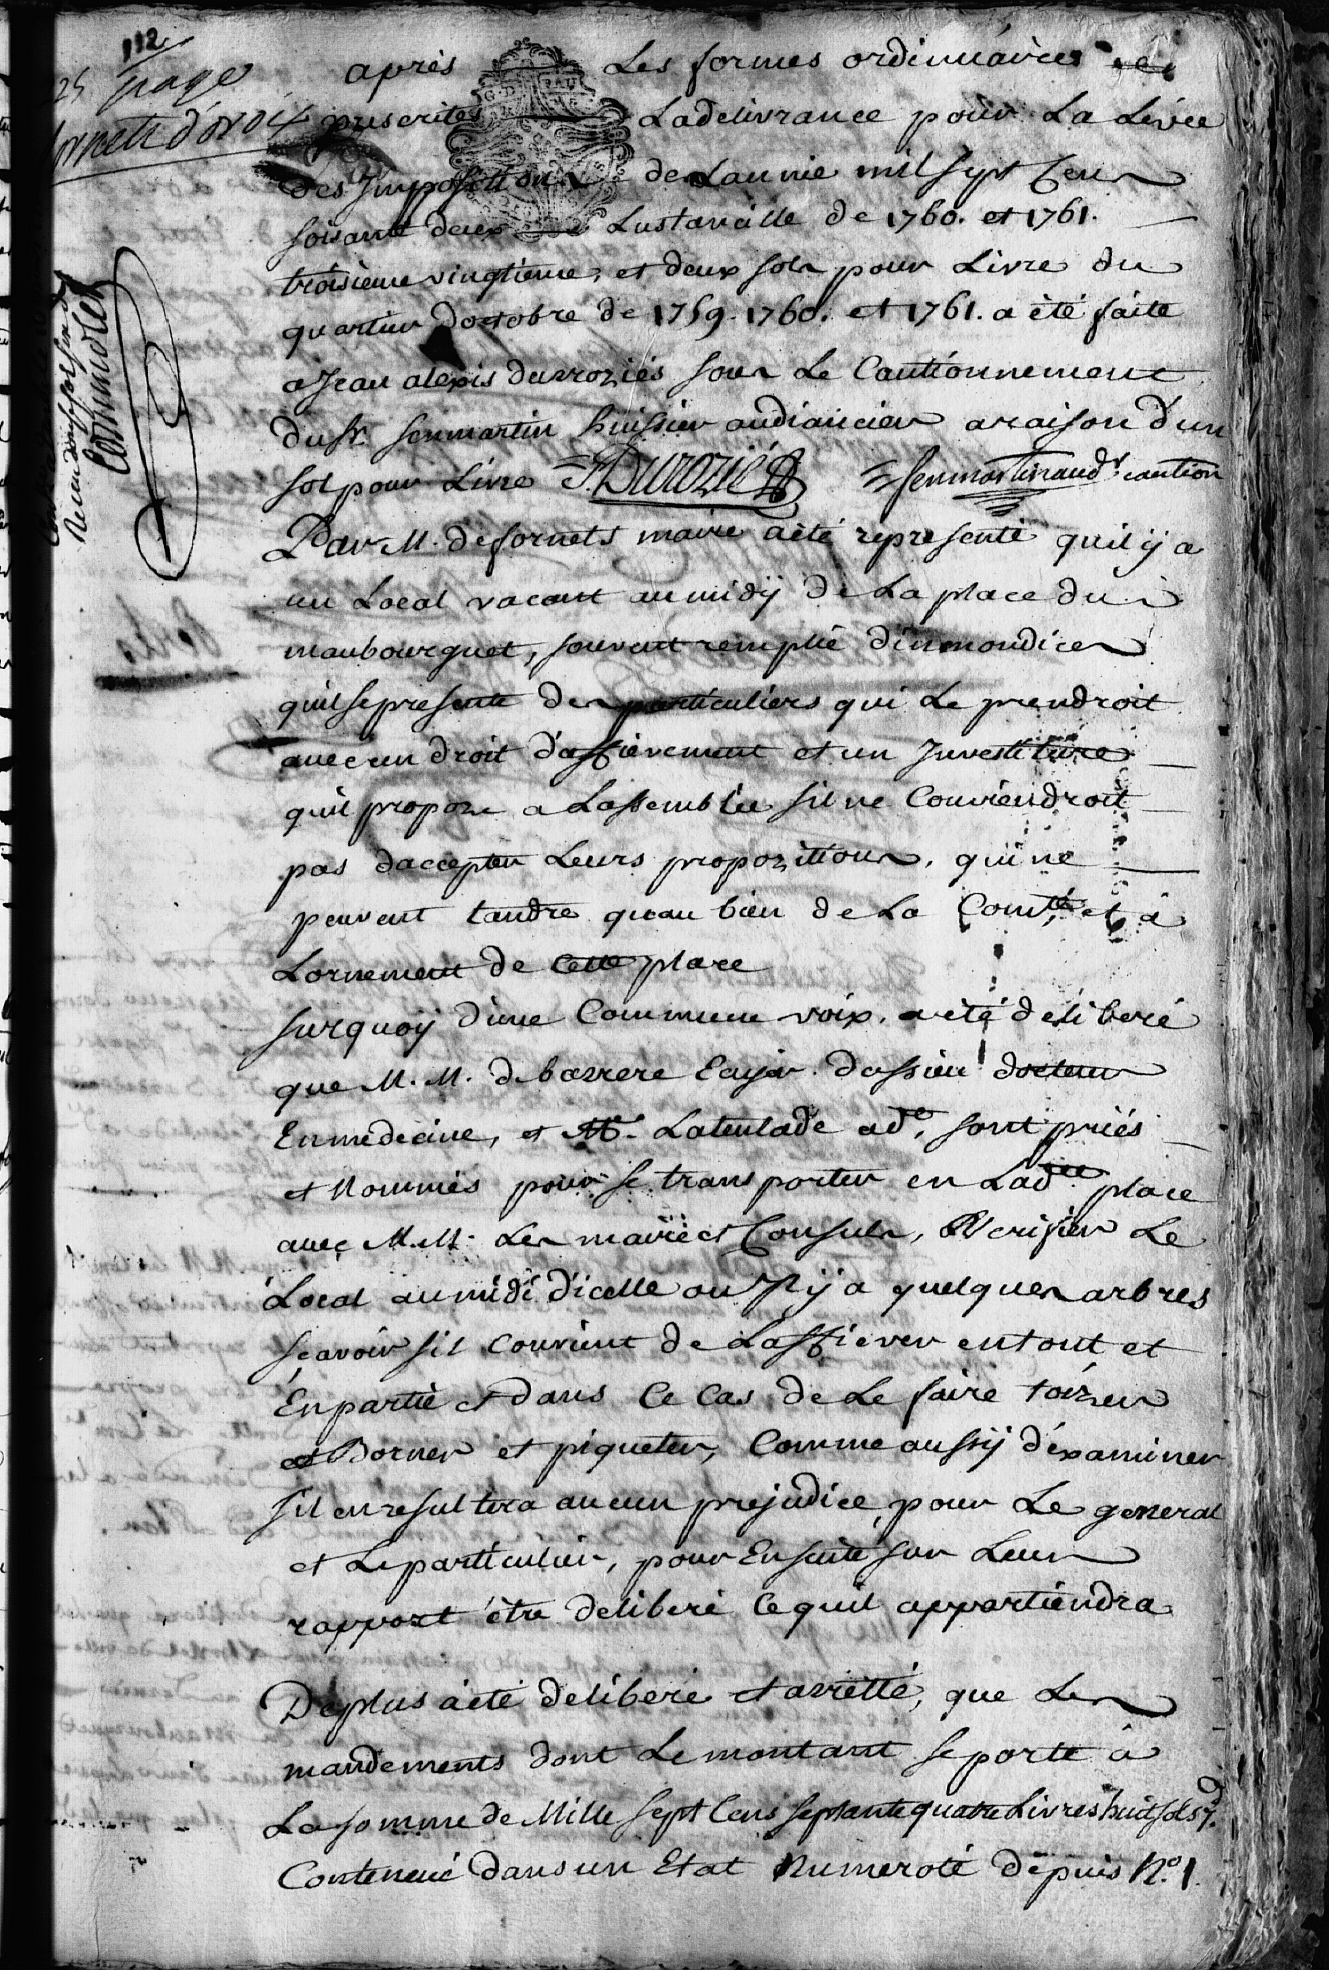 112
page
après Les formes ordinnáires
prescrites Ladelivrance pour La Levée
des Jmposittons de Lannée mil sept Cens
soixante deux Lustancille de 1760. et 1761.
troisieme vingtieme, et deux sols pour Livre du
quartier doctobre de 1759. 1760. et 1761. a été faite
a Jean alexis durroziés sous Le Cautionnement
du Sr. senmartin huissier audiancier a raison d'un
sol pour Livre J. Duroziés senmartin aud.r caution
Par M. de fornets maire a été representé quil ÿ a
un Local vacant au midÿ de La place du
maubourguet, souvent remplie d'inmondices
quil se presente des particuliers qui Le prendroit
avec un droit d'affievement et un Jnvestiture
quil propoze a Lassemblée sil ne Conviendroit
pas daccepter Leurs propozittons, qui ne
peuvent tandre quau bien de La Com.té et à
Lornement de Cette place
surquoÿ d'une Commune voix, a été déliberé
que M. M. de barrere Dassieu docteur
En medecine, et Mr. Lateulade ad.t, sont priés
et Nommés pour se transporter en Lad.te place
avec M. M. Les maire et Consuls, Verifier Le
Local au midi d'icelle ou Jl ÿ a quelques arbres
scavoir sil Convient de Laffiever en tout et
En partie et dans Ce Cas de Le faire toizer
et Borner et piqueter, Comme aussÿ d'éxaminer
sil en resultera aucun prejudice pour Le general
et Le particulier, pour Ensuite sur Leur
rapport être deliberé Ce quil appartiendra
De plus a été deliberé et arretté, que Les
mandements dont Le montant se porte à
La somme de Mille sept Cens septante quatre Livres huit sols 7.d
Conteneue dans un Etat Numeroté depuis N.o 1.